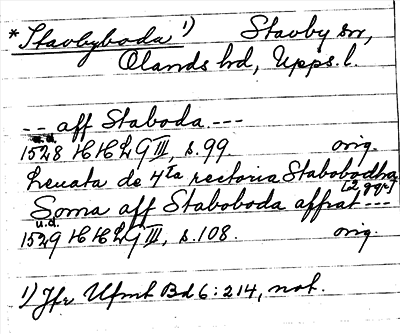 * Stavbyboda 1) Stavby sn,
Olands hd, Upps. l.
-- aff Staboda ---
u.d.
1528 HHLG III, s. 99. orig.
Leuata de 4ta rectoria Stabobodha
[2 ggr]
Soma aff Staboboda affrat ---
u.d.
1529 HHLG III, s. 108. orig.
1) Jfr Ufmt Bd 6: 214, not.